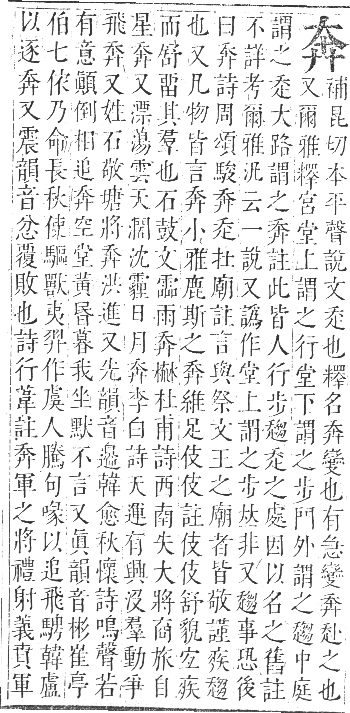 奔補昆切本平聲說文走也釋名奔變也有急變奔赴之也
又爾雅釋宮堂上謂之行堂下謂之步門外謂之趨中庭
謂之走大路謂之奔註此皆人行步趨走之處因以名之舊註
不詳考爾雅汎云一說又譌作堂上謂之步𠀤非又趨事恐後
曰奔詩周頌駿奔走在廟註言與祭文王之廟者皆敬謹疾趨
也又凡物皆言奔小雅鹿斯之奔維足伎伎註伎伎舒貌宜疾
而舒畱其羣也石鼓文霝雨奔杜甫詩西南失大將商旅自
星奔又漂蕩雲天闊沈霾日月奔李白詩天運有興沒羣動爭
飛奔又姓石敬塘將奔洪進又先韻音邉韓愈秋懷詩鳴聲若
有意顛倒相追奔空堂黃昏暮我坐默不言又眞韻音彬崔亭
伯七依乃命長秋使驅獸夷羿作虞人騰句喙以追飛騁韓盧
以逐奔又震韻音忿覆敗也詩行葦註奔軍之將禮射義賁軍